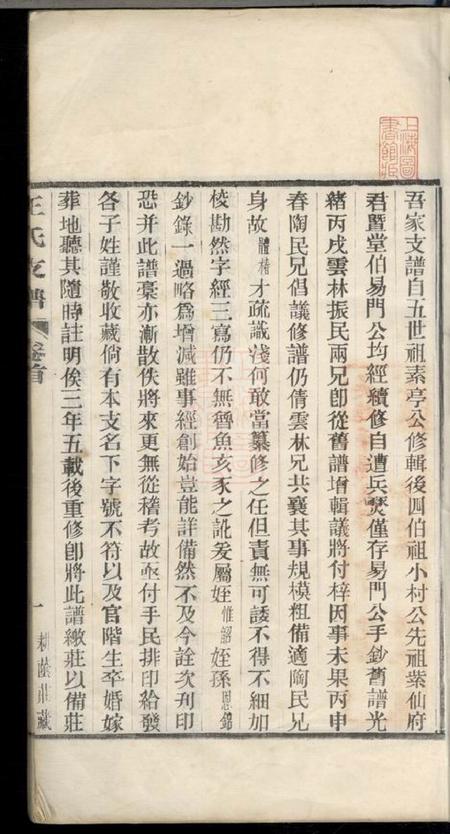 吾家支譜自五世祖素亭公修輯後四伯祖小村公先祖紫仙府
君暨堂伯易門公均經續修自遭兵燹僅存易門公手鈔舊譜光
緒丙戌雲林振民兩兄卽從舊譜增輯議將付梓因事未果丙申
春陶民兄倡議修譜仍倩雲林兄共襄其事規模粗備適陶民兄
身故體椿才疏識淺何敢當纂修之任但責無可諉不得不細加
校勘然字經三寫仍不無魯魚亥豕之訛爰屬姪惟韶姪孫恩錦
鈔錄一過略爲增減雖事經創始豈能詳備然不及今詮次刋印
恐并此譜稾亦漸散佚將來更無從稽考故亟付手民排印給發
各子姓謹敬收藏倘有本支名下字號不符以及官階生卒婚嫁
葬地聽其隨時註明俟三年五載後重修卽將此譜繳莊以備莊
王氏支譜
卷首
一
耕蔭莊藏
上海圖書館藏